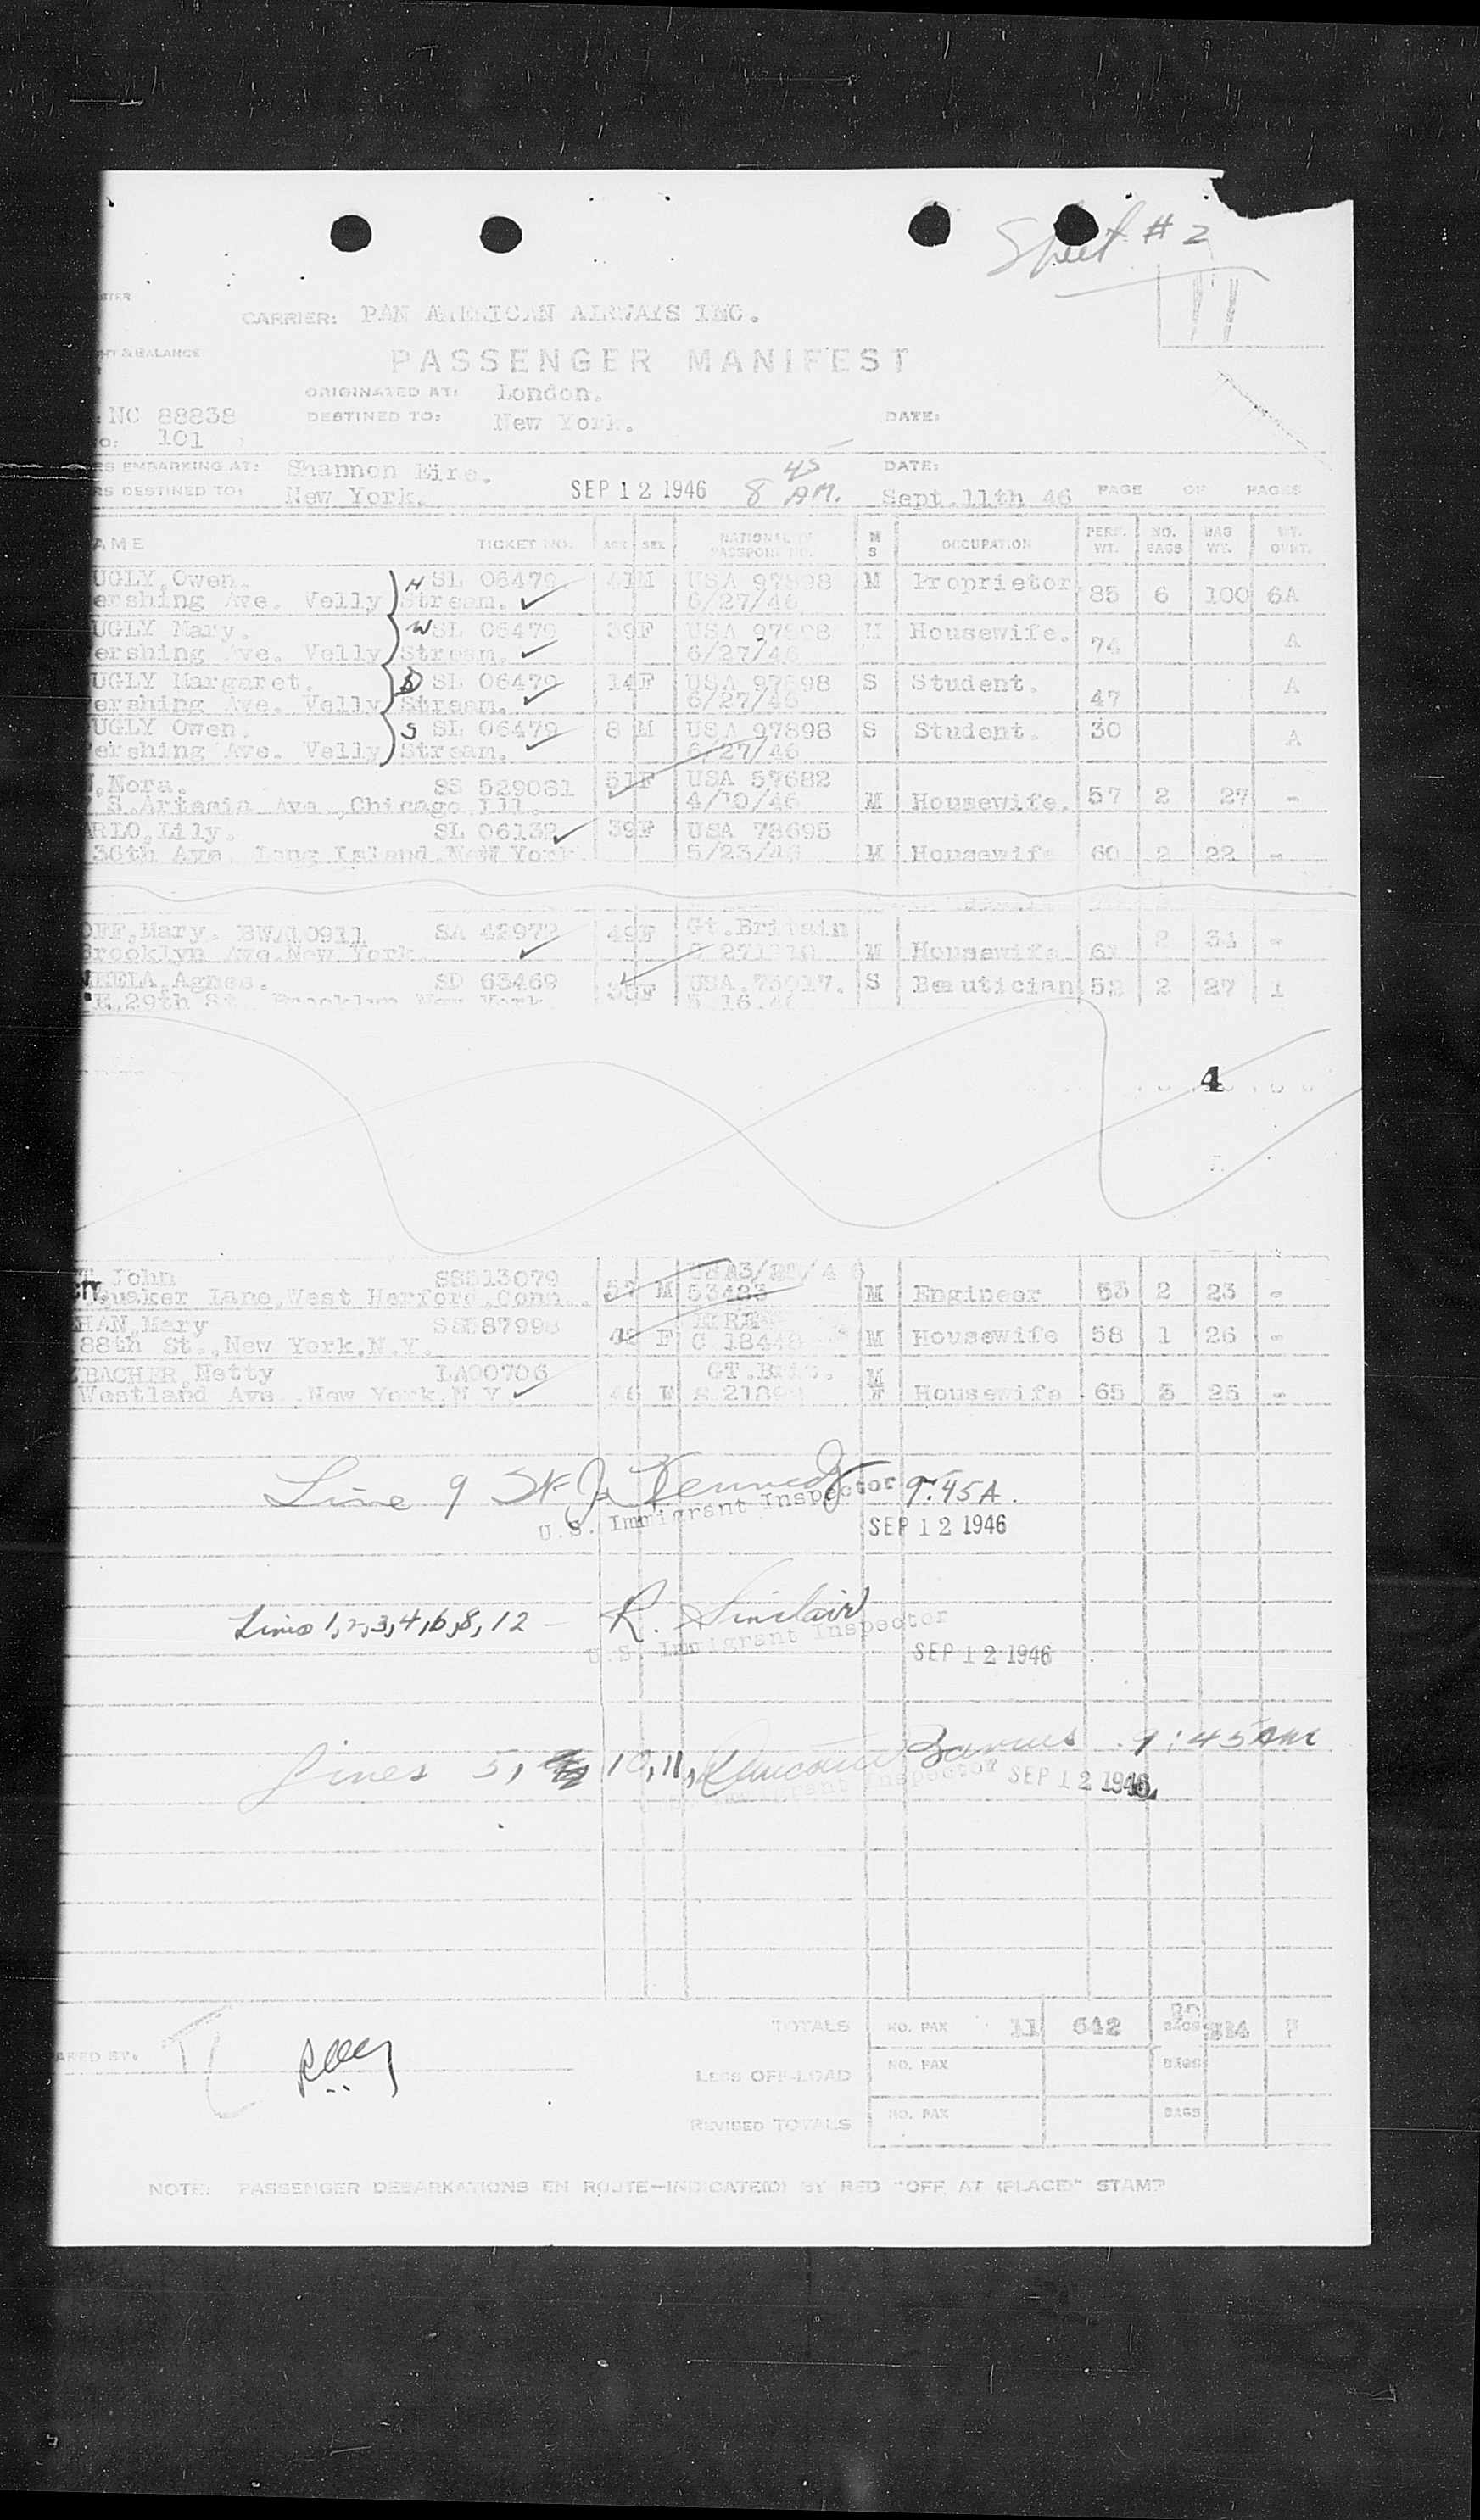 Sheet # 2
11
CARRIER: PAN AMERICAN AIRWAYS INC.
HT & BALANCE
PASSENGER MANIFEST
ORIGINATED AT: London.
NC 88838 DESTINED TO: New York. DATE:
O: 101
RS EMBARKING AT: Shannon Eire. 8 45 AM. DATE:
RS DESTINED TO: New York. SEP 12 1946 Sept.11th 46 PAGE OF PAGES
AME TICKET NO. AGE SEX NATIONALITY PASSPORT NO. M S OCCUPATION PERS. WT. NO. BAGS BAG WT. WT. OVRT.
UGLY, Owen. H SL 06479 41 M USA 97898 M Proprietor 85 6 100 6A
ershing Ave. Velly Stream. 6/27/46
UGLY Mary. W SL 06479 39 F USA 97898 M Housewife. 74 A
ershing Ave. Velly Stream. 6/27/46
UGLY Margaret. D SL 06479 14 F USA 97898 S Student. 47 A
ershing Ave. Velly Stream. 6/27/46
UGLY Owen. S SL 06479 8 M USA 97898 S Student. 30 A
ershing Ave. Velly Stream. 6/27/46
, Nora. SS 529081 51 F USA 57682 M Housewife. 57 2 27 -
S. Artesia Ave, Chicago Ill. 4/10/46
ARLO, Lily. SL 06132 39 F USA 78695 M Housewife 60 2 22 -
36th Ave Long Island, New York. 5/23/46
OFF, Mary. BWA10911 SA 42972 49 F Gt.Britain M Housewife 2 34 -
Brooklyn Ave. New York.
Agnes. SD 63469 35 F USA. S Beautician 52 2 27 1
E. 29th St. Brooklyn New York. 5 16.46
4
John 57 M 53423 M Engineer 53 2 23 -
Quaker Lane, West Herford, Conn.
HAN, Mary F M Housewife 58 1 26 -
88th St., New York, N.Y.
BACHER, Netty LA00706 46 F GT.Brit. M Housewife 65 3 25 -
Westland Ave, New York, N.Y. F
Line 9 Kennedy 9:45 A.
U.S. Immigrant Inspector
SEP 12 1946
Lines 1,2,3,4,6,8,12 - R. Sinclair
U.S. Immigrant Inspector
SEP 12 1946
Lines 5, 10, 11, 9:45 AM
Immigrant Inspector SEP 12 1946
TOTALS NO. PAX 11 642 BAGS
ARED BY.
LESS OFF-LOAD NO. PAX BAGS
REVISED TOTALS NO. PAX BAGS
NOTE: PASSENGER DEBARKATIONS EN ROUTE—INDICATE(D) BY RED "OFF AT (PLACE)" STAMP